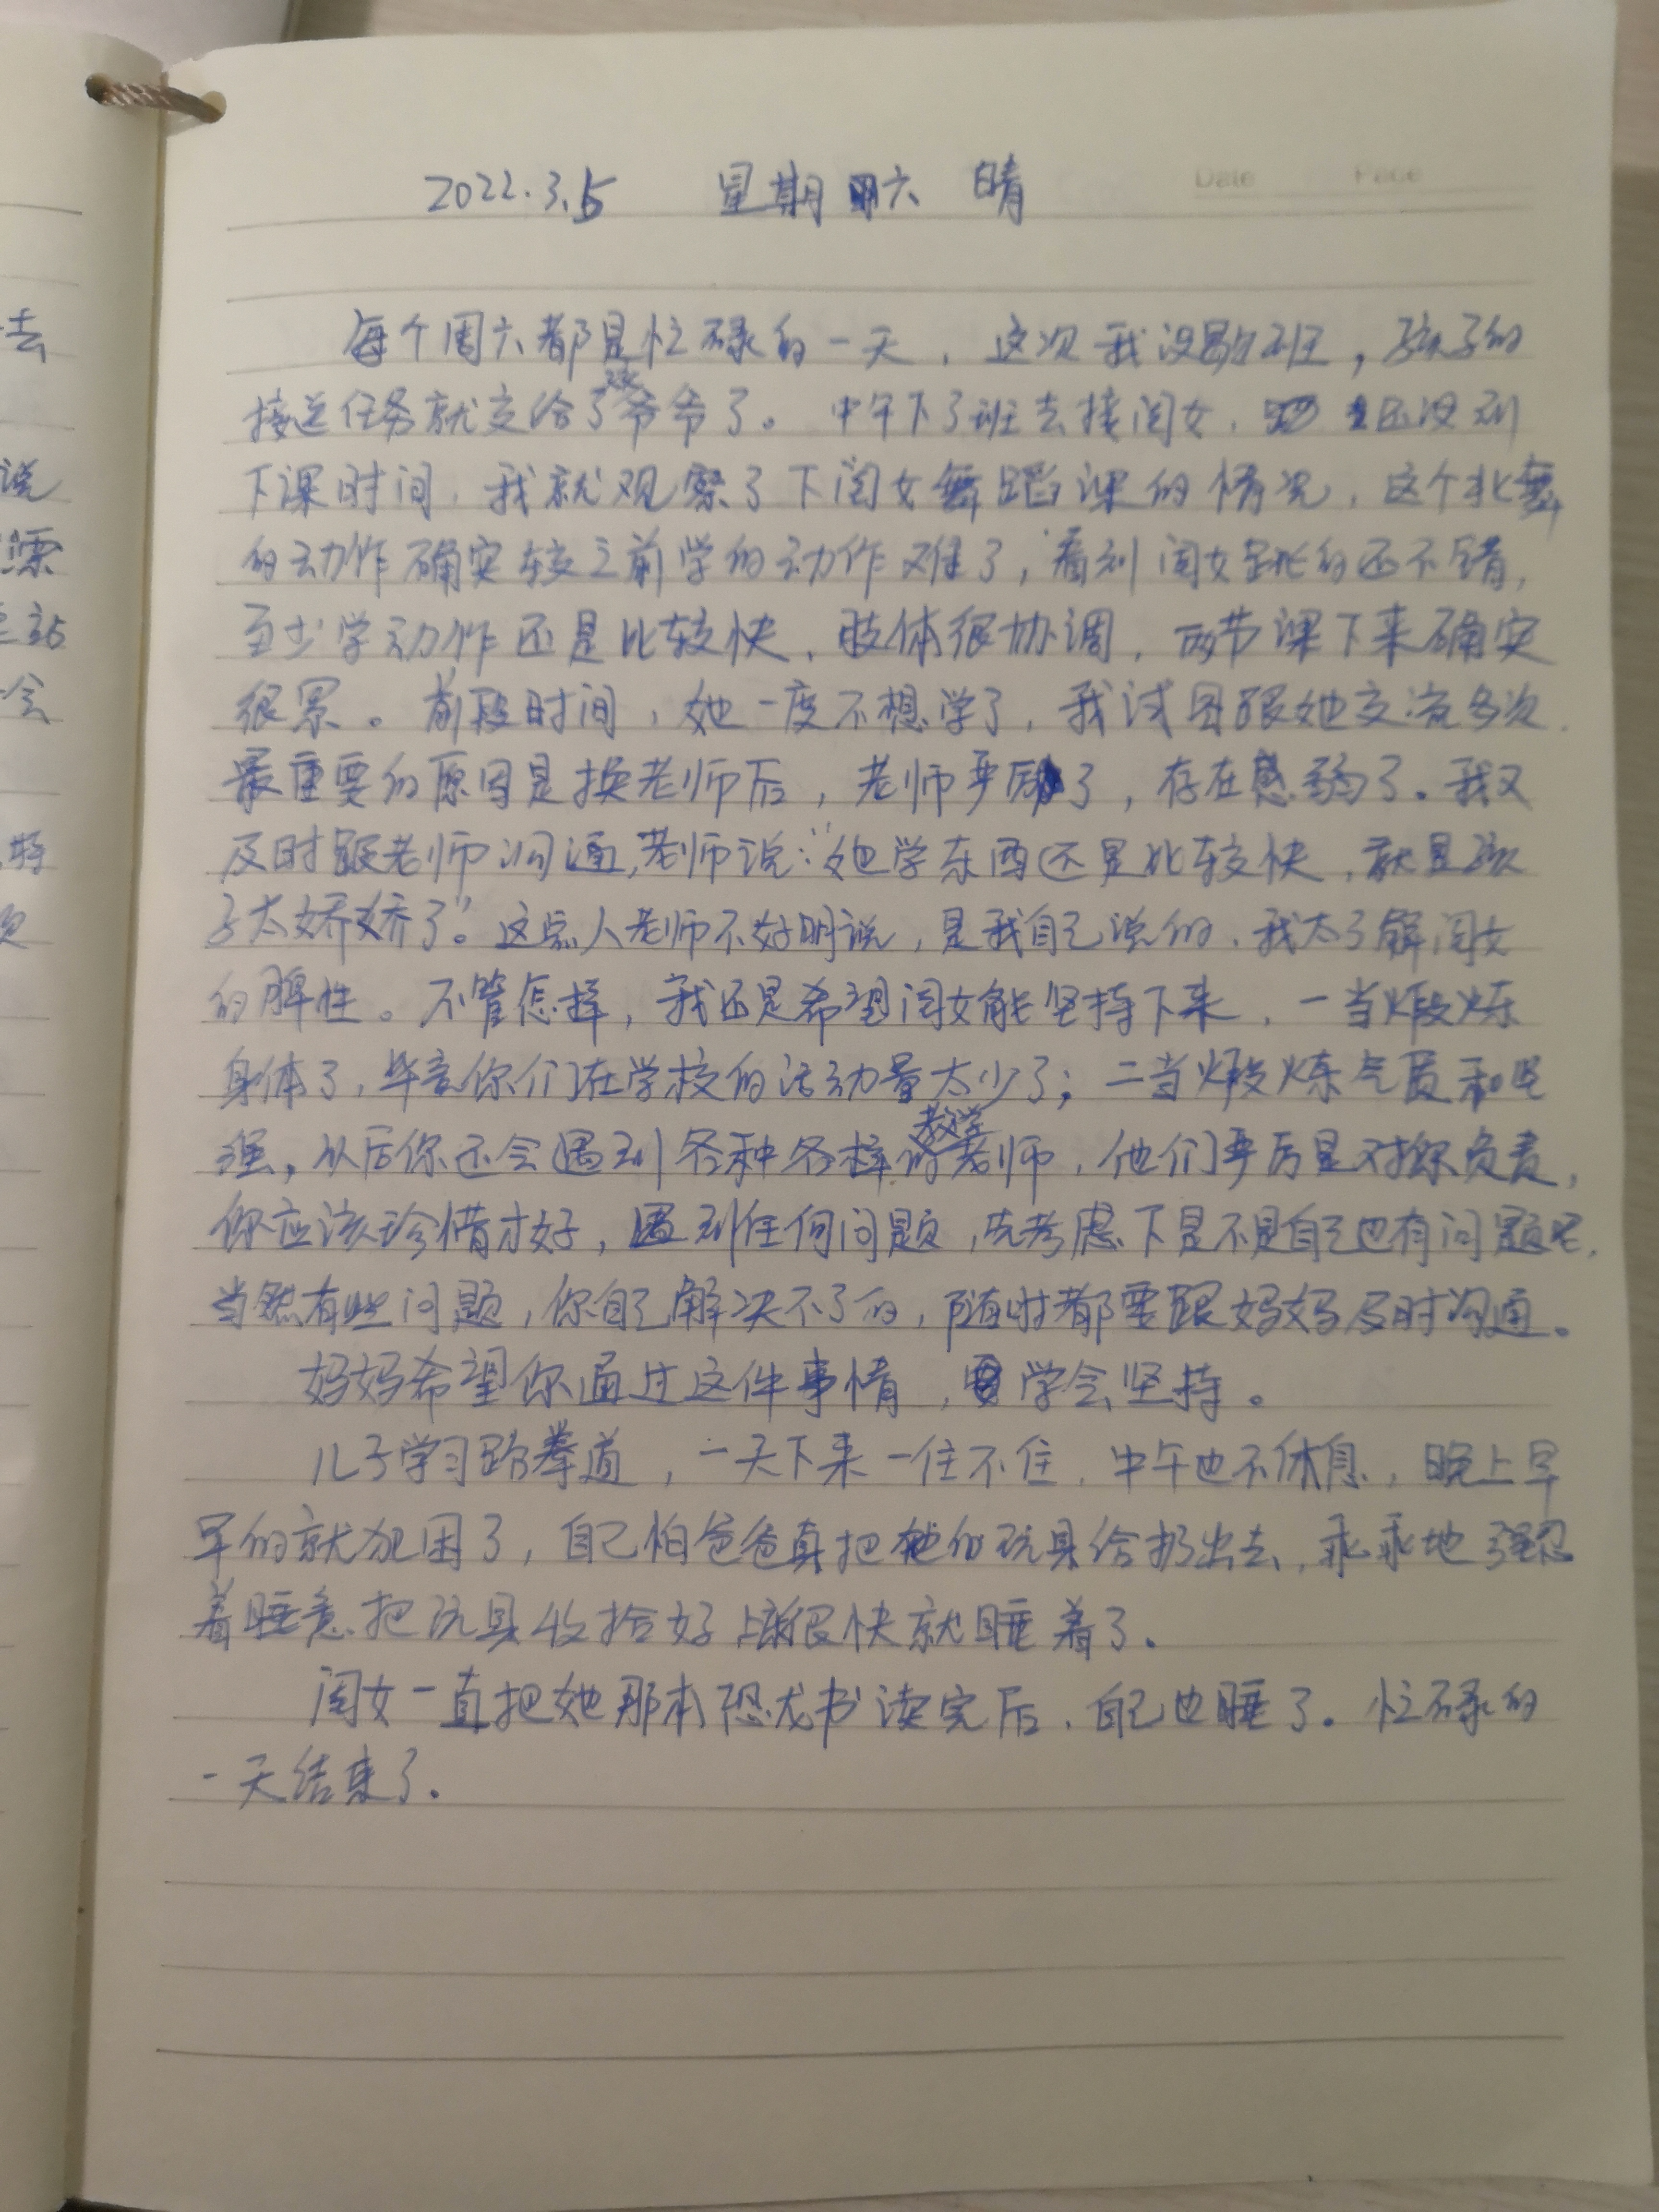 2022.3.5 星期六 晴
Date Page
每个周六都是忙碌的一天，这次我没歇班，孩子的
接送任务就交给了爷爷了。中午下了班去接闺女，还没到
下课时间，我就观察了下闺女舞蹈课的情况，这个北舞
的动作确实较之前学的动作难了，看到闺女跳的还不错，
至少学动作还是比较快，肢体很协调，两节课下来确实
很累。前段时间，她一度不想学了，我试图跟她交流多次，
最重要的原因是换老师后，老师严厉了，存在感弱了。我又
及时跟老师沟通，老师说："她学东西还是比较快，就是孩
子太娇娇了"。这点人老师不好明说，是我自己说的，我太了解闺女
的脾性。不管怎样，我还是希望闺女能坚持下来，一当煅炼
身体了，毕竟你们在学校的活动量太少了；二当煅炼气质和坚
强，从后你还会遇到各种各样教学的老师，他们严厉是对你负责，
你应该珍惜才好，遇到任何问题，先考虑下是不是自己也有问题呢，
当然有些问题，你自己解决不了的，随时都要跟妈妈及时沟通。
妈妈希望你通过这件事情，学会坚持。
儿子学习跆拳道，一天下来一住不住，中午也不休息，晚上早
早的就犯困了，自己怕爸爸真把他的玩具给扔出去，乖乖地强忍
着睡意把玩具收拾好，很快就睡着了。
闺女一直把她那本恐龙书读完后，自己也睡了。忙碌的
一天结束了。
去
说
漂
站
会